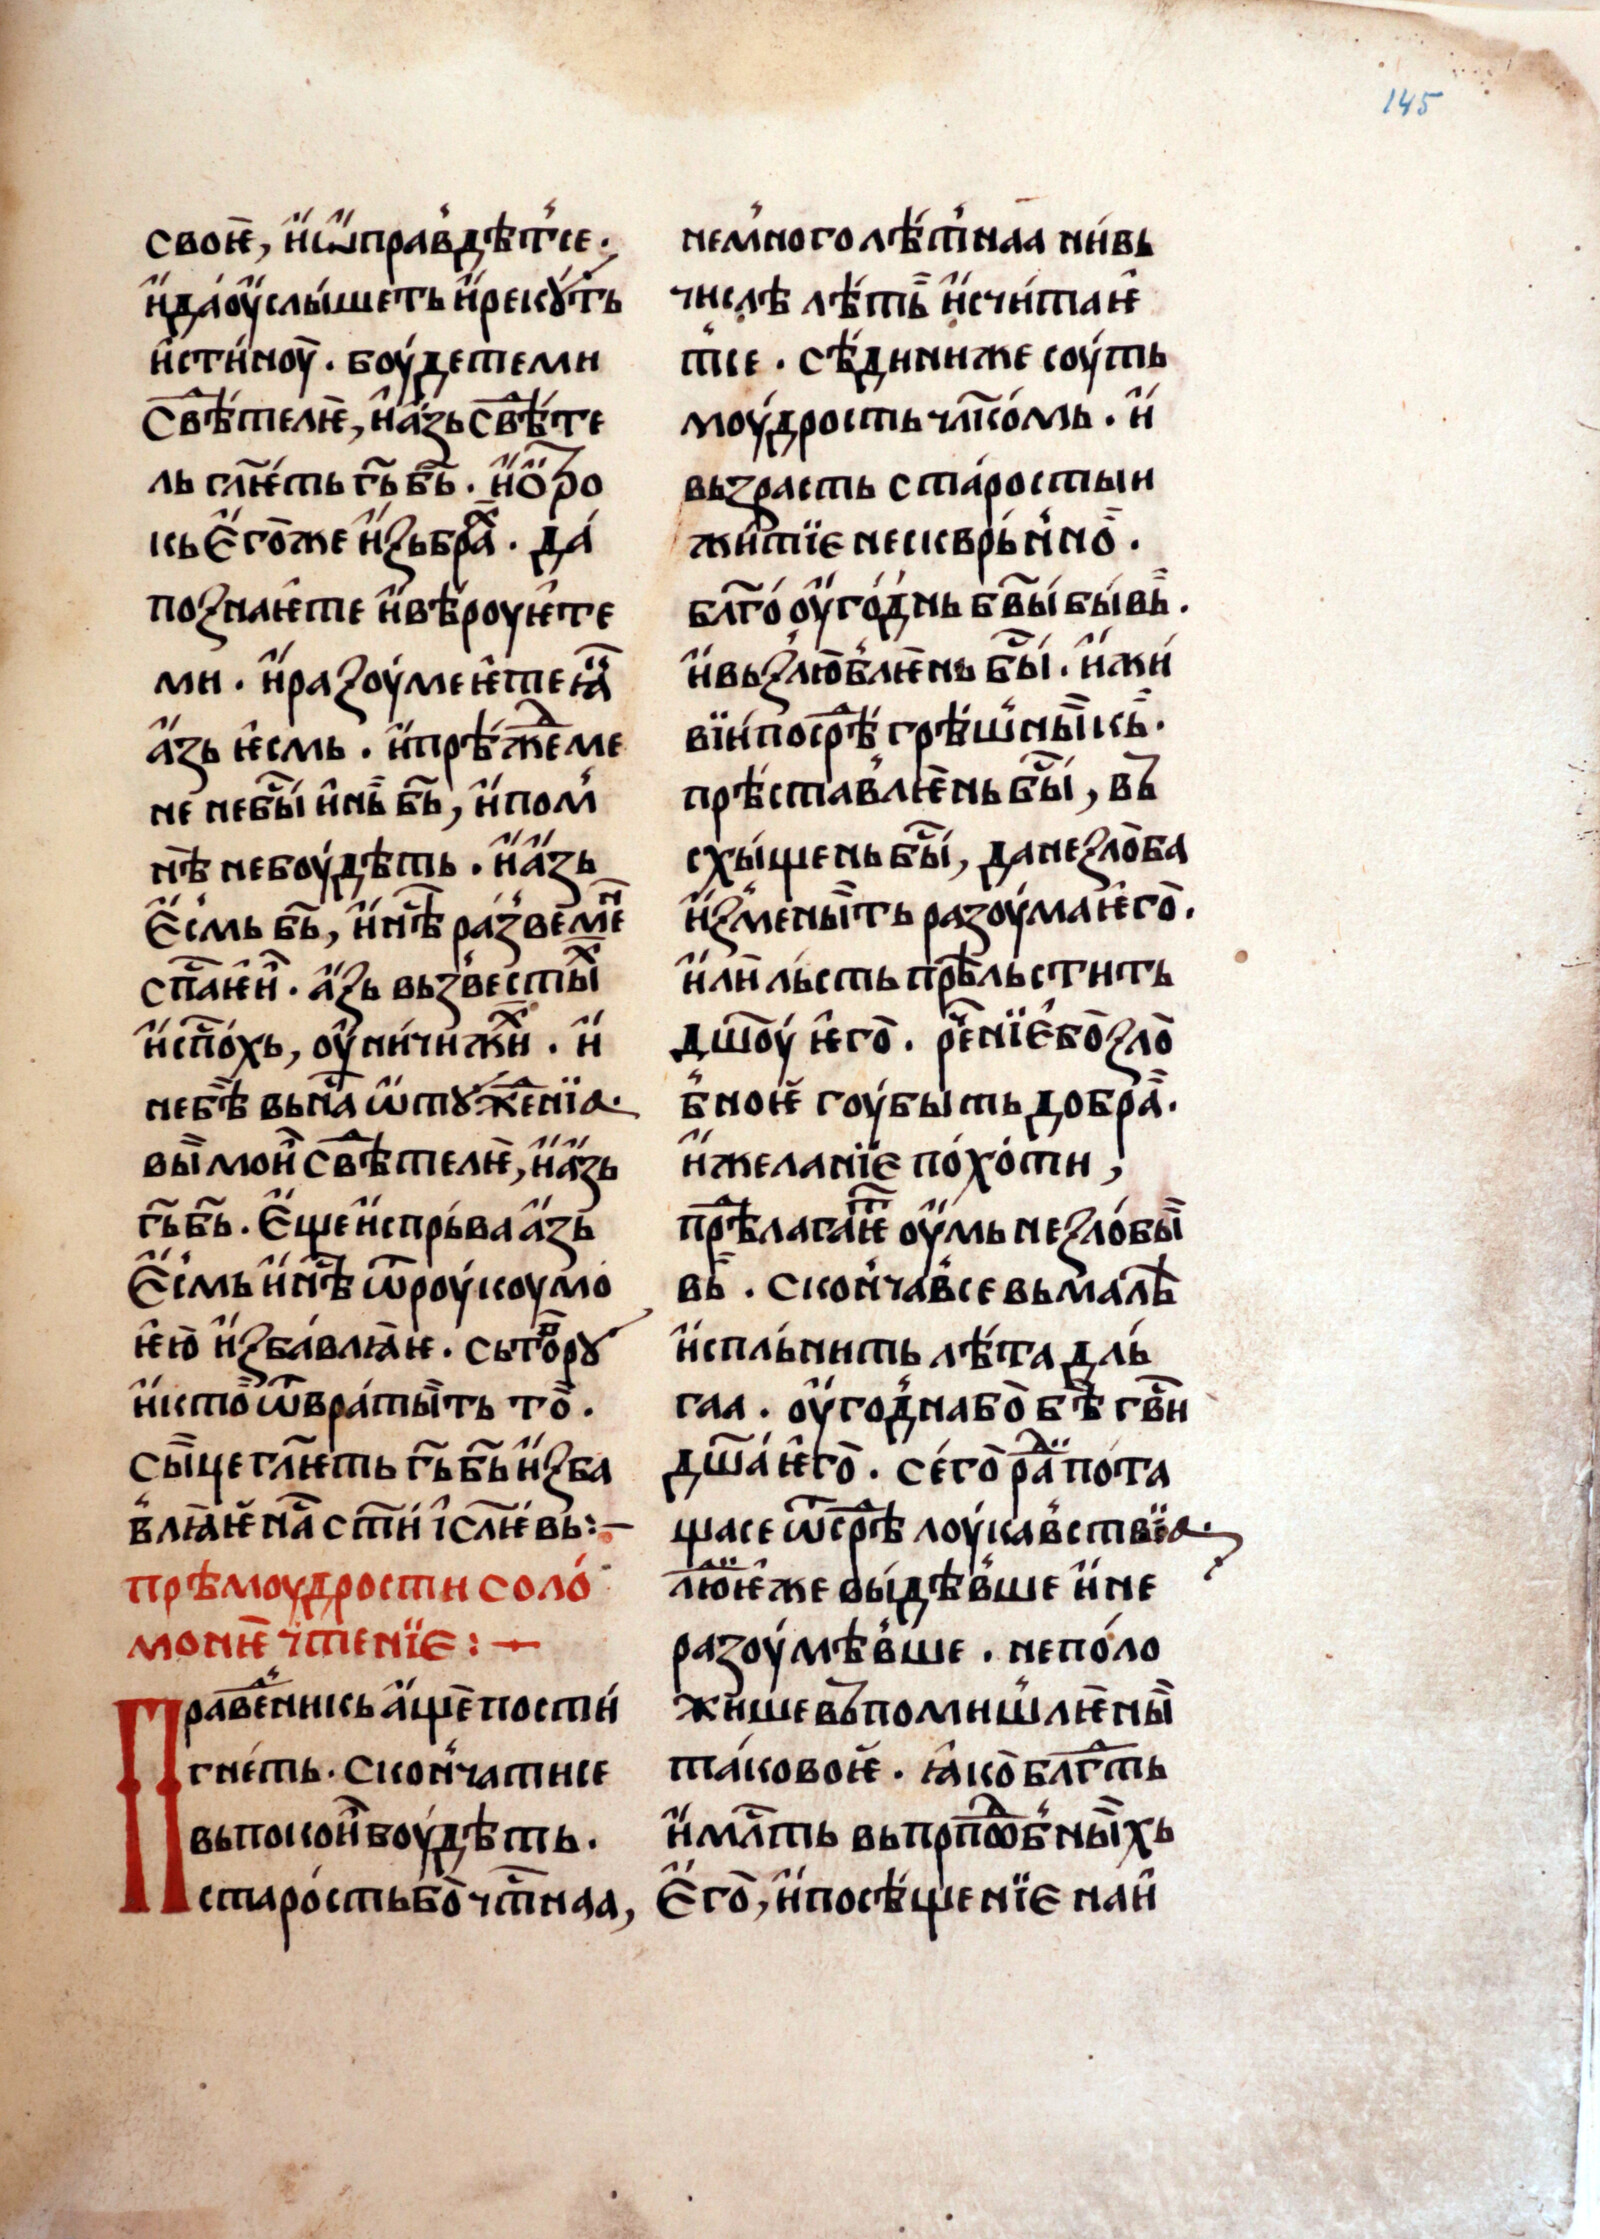 145
своѥ̀, и҆ ѡ҆правдѣт се·
и҆ да оу҆слы́шеть и҆ рекꙋ́ть
и҆стиноу̀· боудете ми
свⷣѣтелѥ̀, и҆ а҆зь свⷣѣте
ль гл҃ѥть гь҃ бь҃· и҆ ѻ҆тро
кь є҆го́же и҆ꙁьбраⷯ· да́
поꙁнаѥте и҆ вѣроуѥте
ми· и҆ раꙁоу́меѥте ꙗ҆ⷦ҇
а҆зь ѥ҆смь· и҆ прѣжⷣе ме
не не быⷭ҇ и҆нь бь҃, и҆ по м
нѣ̀ не боудѣть· и҆ а҆зь
є҆смь бь҃, и҆ нⷭ҇ѣ ра́зве менⷩ
сп҃аѥи҆· а҆ꙁь вьзвестыⷯ
и҆ сп҃о́хь, оу҆ничижиⷯ· и҆
не бѣⷭ҇ вь наⷭ҇ ѡ҆тꙋжⷣенїа·
вы̀ мои свⷣѣтелѥ̀, и҆ а҆зь
гь҃ бь҃· є҆ще и҆спрьва а҆зь
є҆смь и҆ нⷭ҇ѣ ѿ роу́коу мо
ѥю̀ и҆ꙁба́влꙗѥ· сьтвⷪ҇рꙋ
и҆ кто̀ ѿвраты́ть то̀·
сы̀це гл҃ѥть гь҃ бь҃ и҆ꙁба
влꙗѥи наⷭ҇ ст҃и і҆сл҃ѥвь:–
прѣмоудрости соло́
монѥ̀ чтенїє:–
Праведⷣникь а҆щѐ пости́
гнеть· сконча́ти се
вь покои боудѣть·
ста́рость бо̀ чⷭ҇тнаа,
не мно́го лѣтнаа ни вь
числѣ лѣть̀ и҆счи́таѥ
т се· сѣдини же соуть
моу́дрость чл҃ко́мь· и҆
вьꙁрасть ста́ростыи
житїє нескврьнно̀·
бл҃го́ оу҆го́днь бв҃ы бы́вь̀·
и҆ вьꙁлю́блѥнь быⷭ҇· и҆ жи
вїи посрⷣѣ грѣшны̀кь̀·
прѣставлѥнь быⷭ҇, вь
схы́щень быⷭ҇, да не ꙁло̀ба
и҆ꙁмены́ть разоу́ма ѥго̀·
и҆ли ль́сть прѣльстить
дш҃оу ѥго̀· рⷡ҇енїє бо̀ ꙁло̀
вноѥ гоубыть добраⷶ·
и҆ жела́нїє по́хоти,
прѣлагаѥтⷮ оу҆мь неꙁло́бы̀
вь̀· сконча́в се вь ма́лѣ
и҆спльнить лѣта дль́
гаа· оу҆годна бо̀ бѣⷭ҇ гвⷭ҇и
дш҃а ѥго̀· се́го̀ раⷣи пота
ща се ѿ срⷣѣ лоукавствїа·
лю́дїѥ же вы́дѣвше и҆ не
разоу́мѣвше· не по́ло
жише вь помишлѥны̀
та́ковоѥ· ꙗ҆ко̀ блгⷣть
и҆ млⷭ҇ть вь прпⷣѡбны̀хь
є҆го̀, и҆ посѣщенїє на и